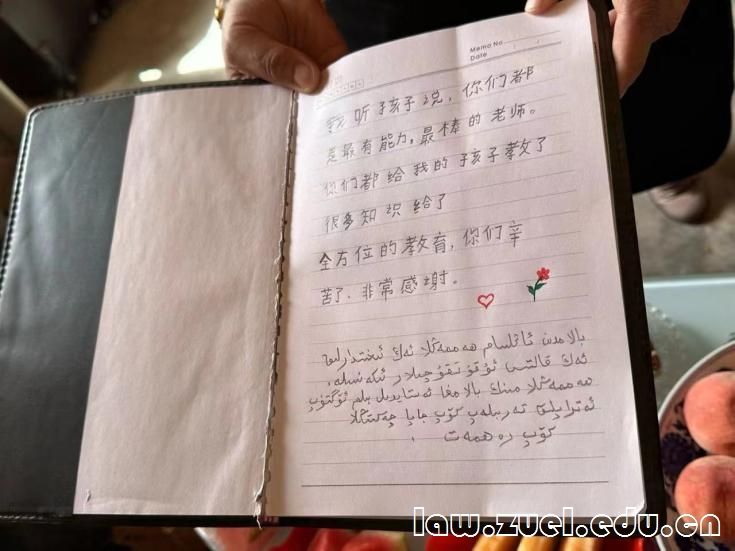 Memo No.
Date
我听孩子说，你们都
是最有能力，最棒的老师。
你们都给我的孩子教了
很多知识给了
全方位的教育，你们辛
苦了、非常感谢。
بالامدىن ئاڭلىسام ھەممىڭلا ئەڭ ئىختىدارلىق
ئەڭ قالتىس ئوقۇتقۇچىلار ئىكەنسىلە.
ھەممىڭلا مىنىڭ بالامغا ئەستايىدىل بىلىم ئۆگىتۈپ
تەربىلەپ كۆپ جاپا چەكتىڭلا
كۆپ رەھمەت
law.zuel.edu.cn